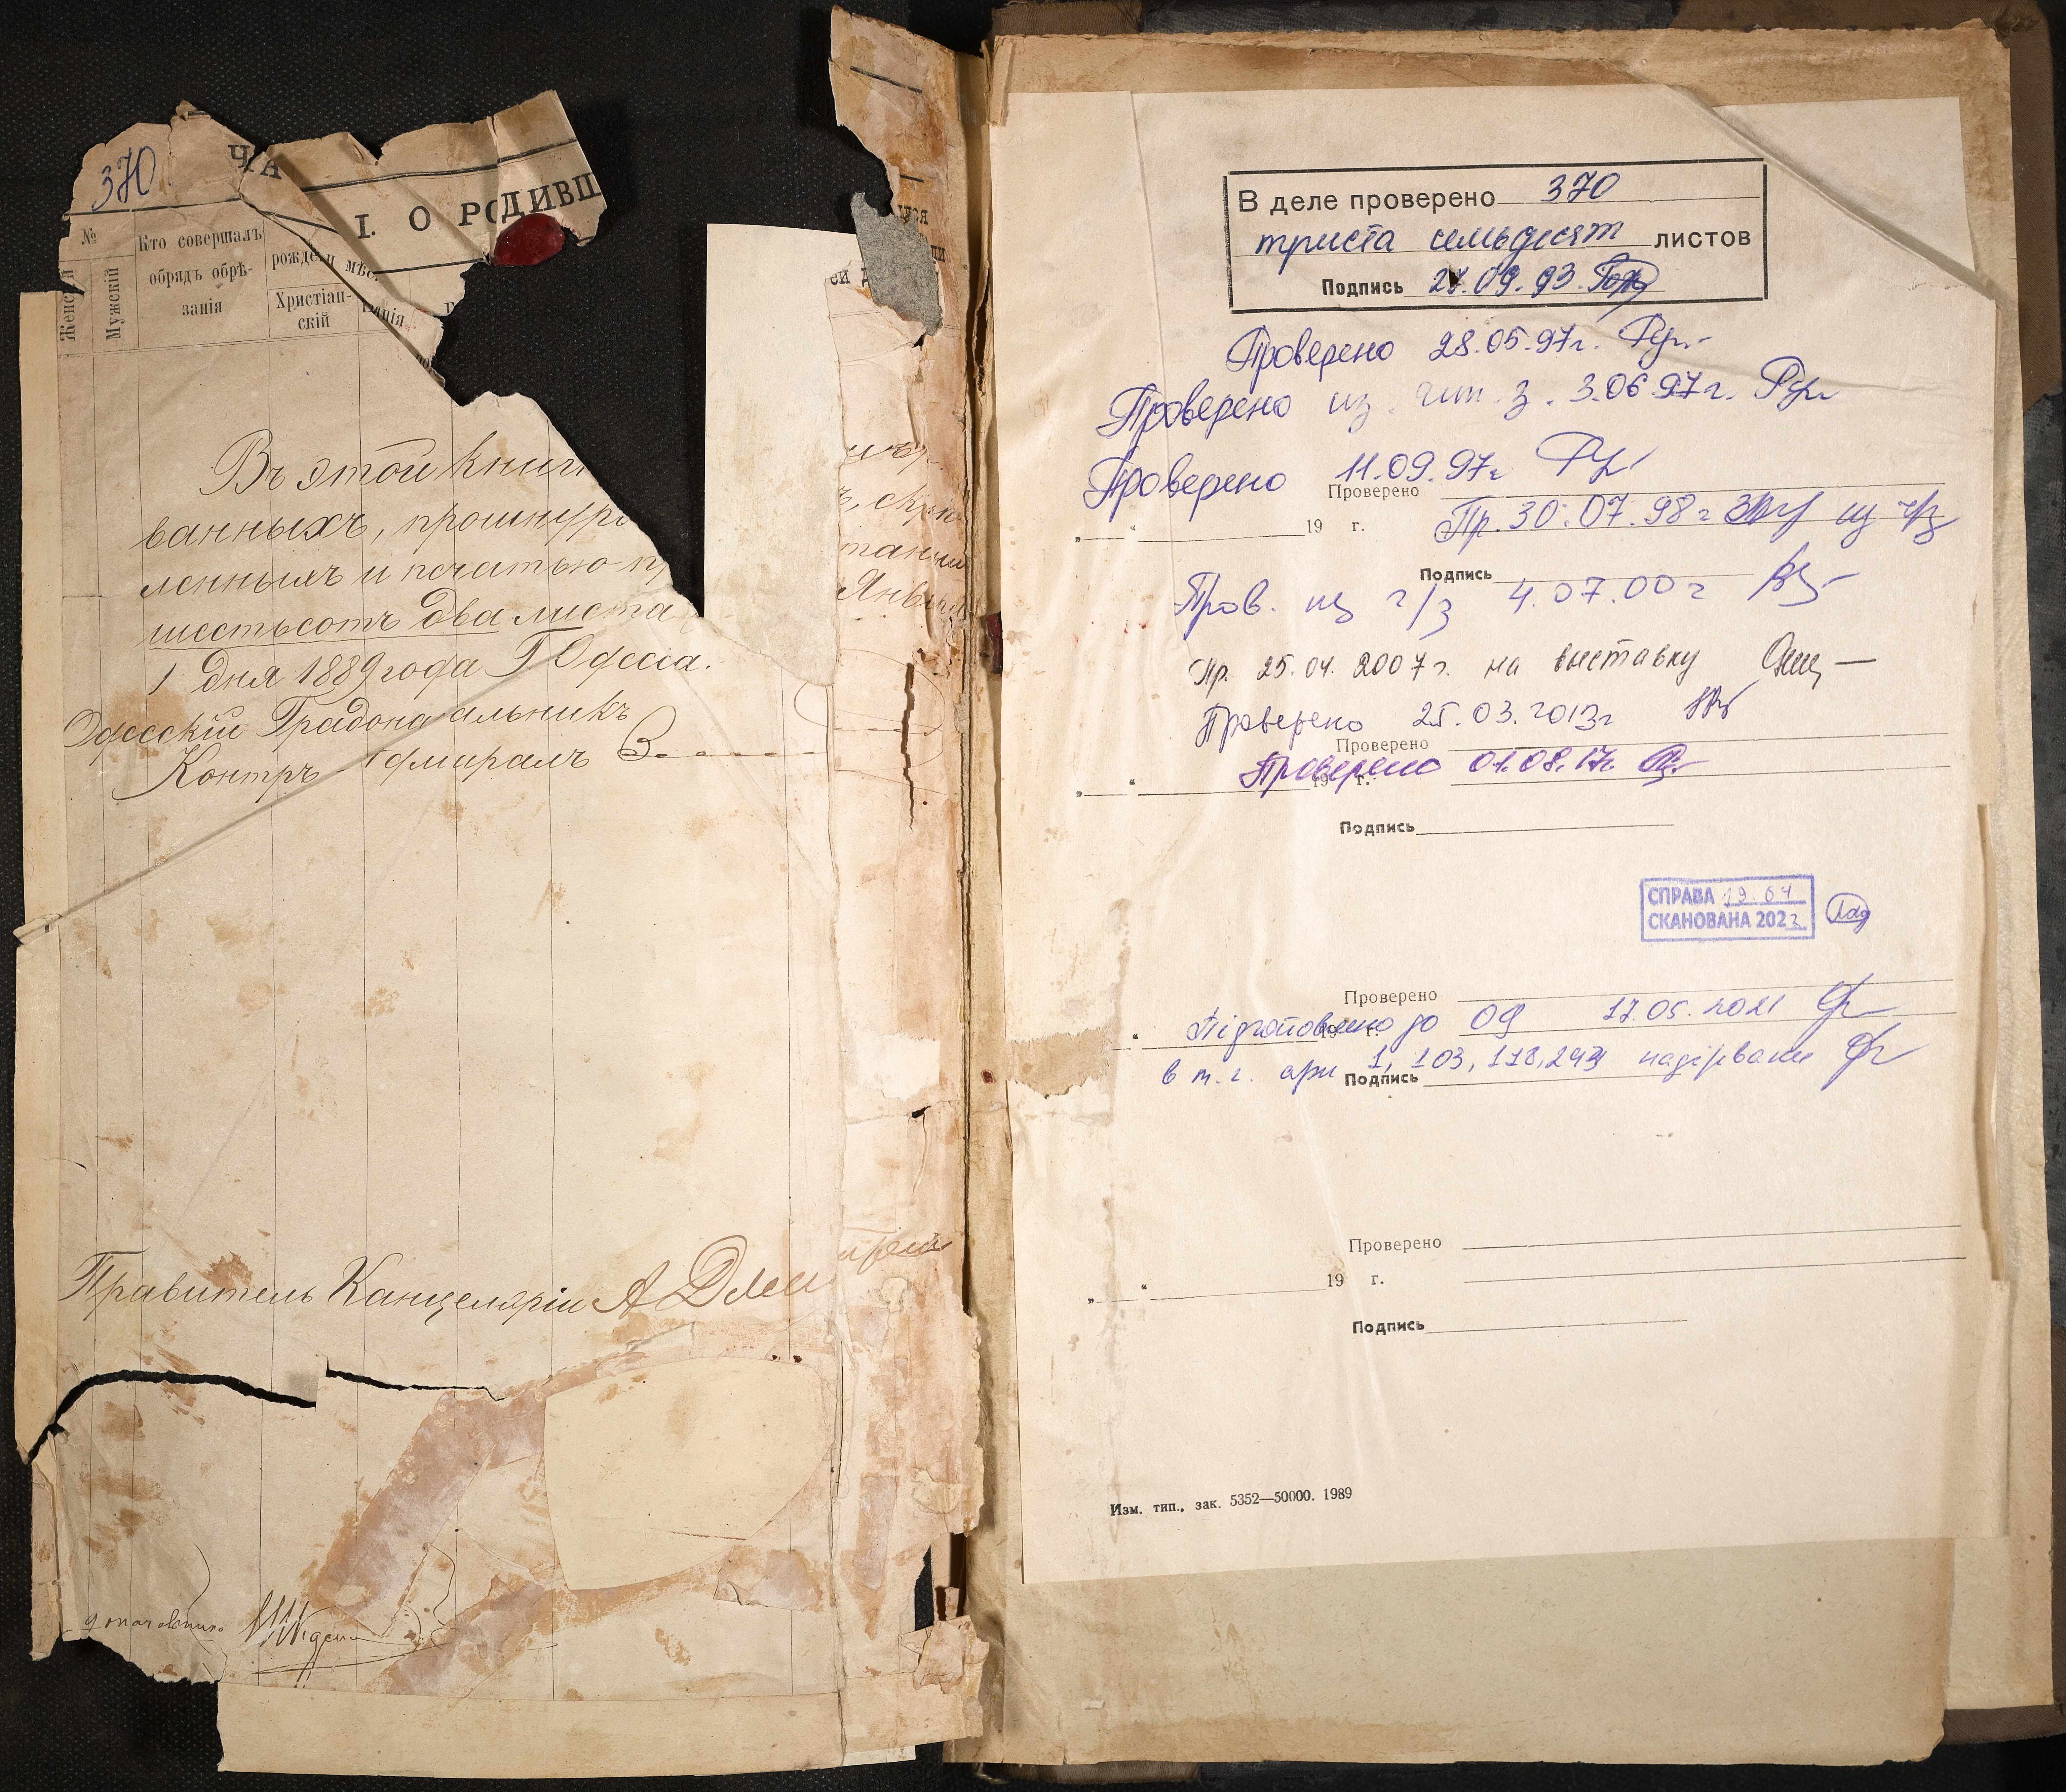 370
ЧА
I. О РОДИВШ
№
Женскій
Мужскій
Кто совершалъ
обрядъ обрѣ-
занія
рожде
и мѣс
Христіан-
скій
Въ этой книг
ванныхъ, прошнуро
леннымъ и печатью
шестьсотъ два листа
Янв
1 дня 1889 года Г Одесса.
Одесскій Градона альникъ
Контръ дмиралъ З
Правитель Канцеляріи А
В деле проверено 370
триста семьдесят листов
Подпись 27.09.93
Проверено 28.05.97г.
Проверено из чит. з. 3.06.97г.
Проверено 11.09.97г
Проверено
„ “ 19 г.
Пр. 30.07.98г из ч/з
Подпись
Пров. из ч/з 4.07.00г
Пр. 25.04.2007г. на выставку
Проверено 25.03.2013г
Проверено
Проверено 01.08.17г.
„ “ 19 г.
Подпись
СПРАВА 19.04
СКАНОВАНА 2022
Проверено
Підготовлено до 17.05.2021
“ 19 г.
в т.ч. арк 1, 103, 118, 243 надірвани
Подпись
Проверено
„ “ 19 г.
Подпись
Изм. тип., зак. 5352—50000. 1989